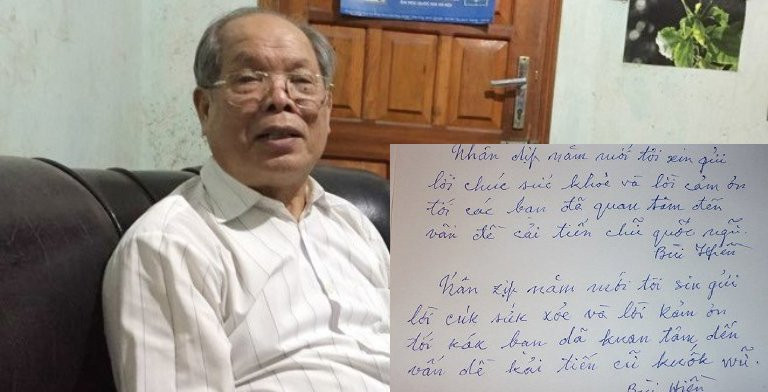 Nhân dịp năm mới tôi xin gửi
lời chúc sức khoẻ và lời cảm ơn
tới các bạn đã quan tâm đến
vấn đề cải tiến chữ quốc ngữ.
Bùi Hiền
zịp năm mới tôi sin gửi
lời cúk sứk xỏe và lời kảm ơn
tới kák bạn dã kuan tâm dến
vấn dề kải tiến cữ kuốk wữ.
Bùi Hiền